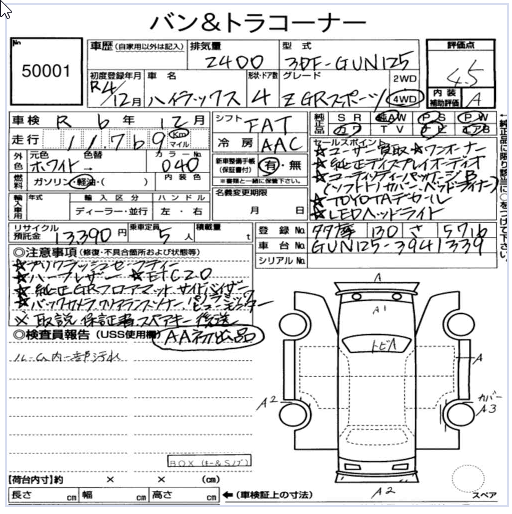 バン&トラコーナー
No
50001
車歴 (自家用以外は記入)
排気量
2400
型式
3DF-GUN125
評価点
4.5
初度登録年月
R4/12月
車名
ハイラックス
形状・ドア数
4
グレード
Z GRスポーツ
2WD
4WD
内装補助評価
A
車検
R 6年12月
シフト
FAT
純正品
SR AW PS PW
TV
走行
11,769
Km
マイル
冷房
AAC
セールスポイント
★ユーザー買取★ワンオーナー
★純正ディスプレイオーディオ
★コーディリティーパッケージB
(ソフトトノカバー、ベッドライナー)
★TOYOTAデカール
★LEDヘッドライト
外色
元色
ホワイト
色替
カラーNo
040
燃料
ガソリン・軽油・( )
内装色
新車整備手帳
(保証書付)
有・無
名義変更期限
月 日
輸入車用
年式
輸入区分
ディーラー・並行
ハンドル
左・右
リサイクル預託金
13390円
乗車定員
5人
積載量
t
登録No.
130 さ 5716
車台No.
GUN125-3941339
シリアルNo.
◎注意事項 (修復・不具合箇所および状態等)
★プリクラッシュセーフティー
★ハーフレザー ★ETC2.0
★純正GRフロアマット サイドバイザー
★バックカメラ クリアランスソナー
※取説 保証書 スペアキー後送
◎検査員報告 (USS使用欄)
AA初出品
シートG内一部汚れ
A
A1
トビA
A
A2
カバーA3
A2
BOX
【荷台内寸】約 × × (cm)
長さ cm 幅 cm 高さ cm
←(車検証上の寸法)
スペア
↑純正品に限り部位に○をつけて下さい。